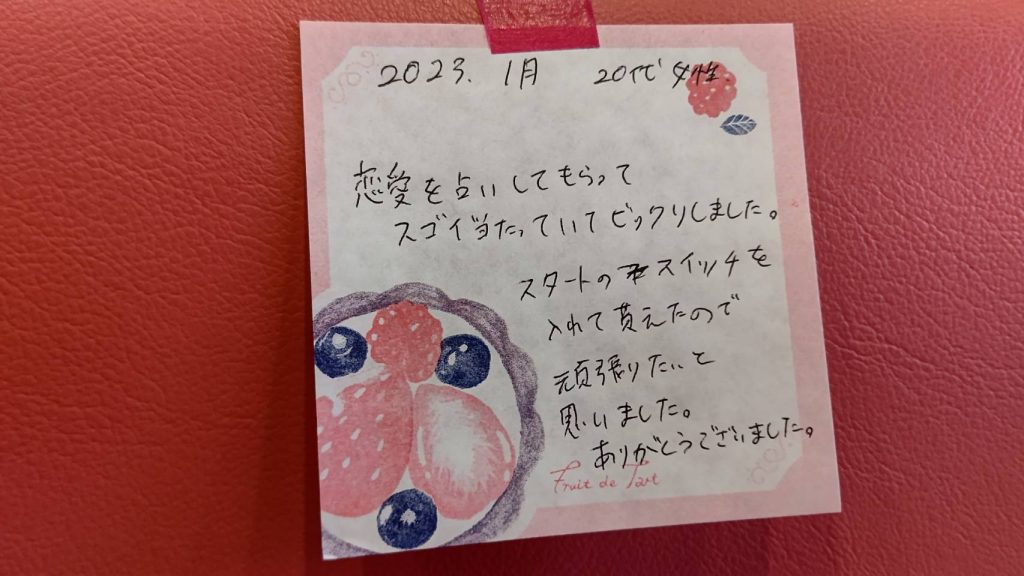 2023. 1月 20代 女性
恋愛を占いしてもらって
スゴイ当たっていてビックリしました。
スタートのスイッチを
入れて貰えたので
頑張りたいと
思いました。
ありがとうございました。
Fruit de Tart